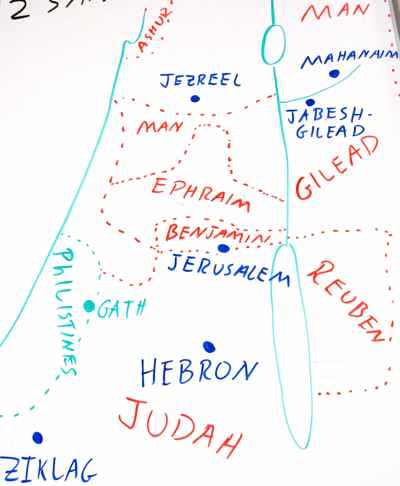 2 SAM
MAN
ASHUR
MAHANAIM
JEZREEL
JABESH-
GILEAD
MAN
GILEAD
EPHRAIM
BENJAMIN
JERUSALEM
REUBEN
PHILISTINES
GATH
HEBRON
JUDAH
ZIKLAG